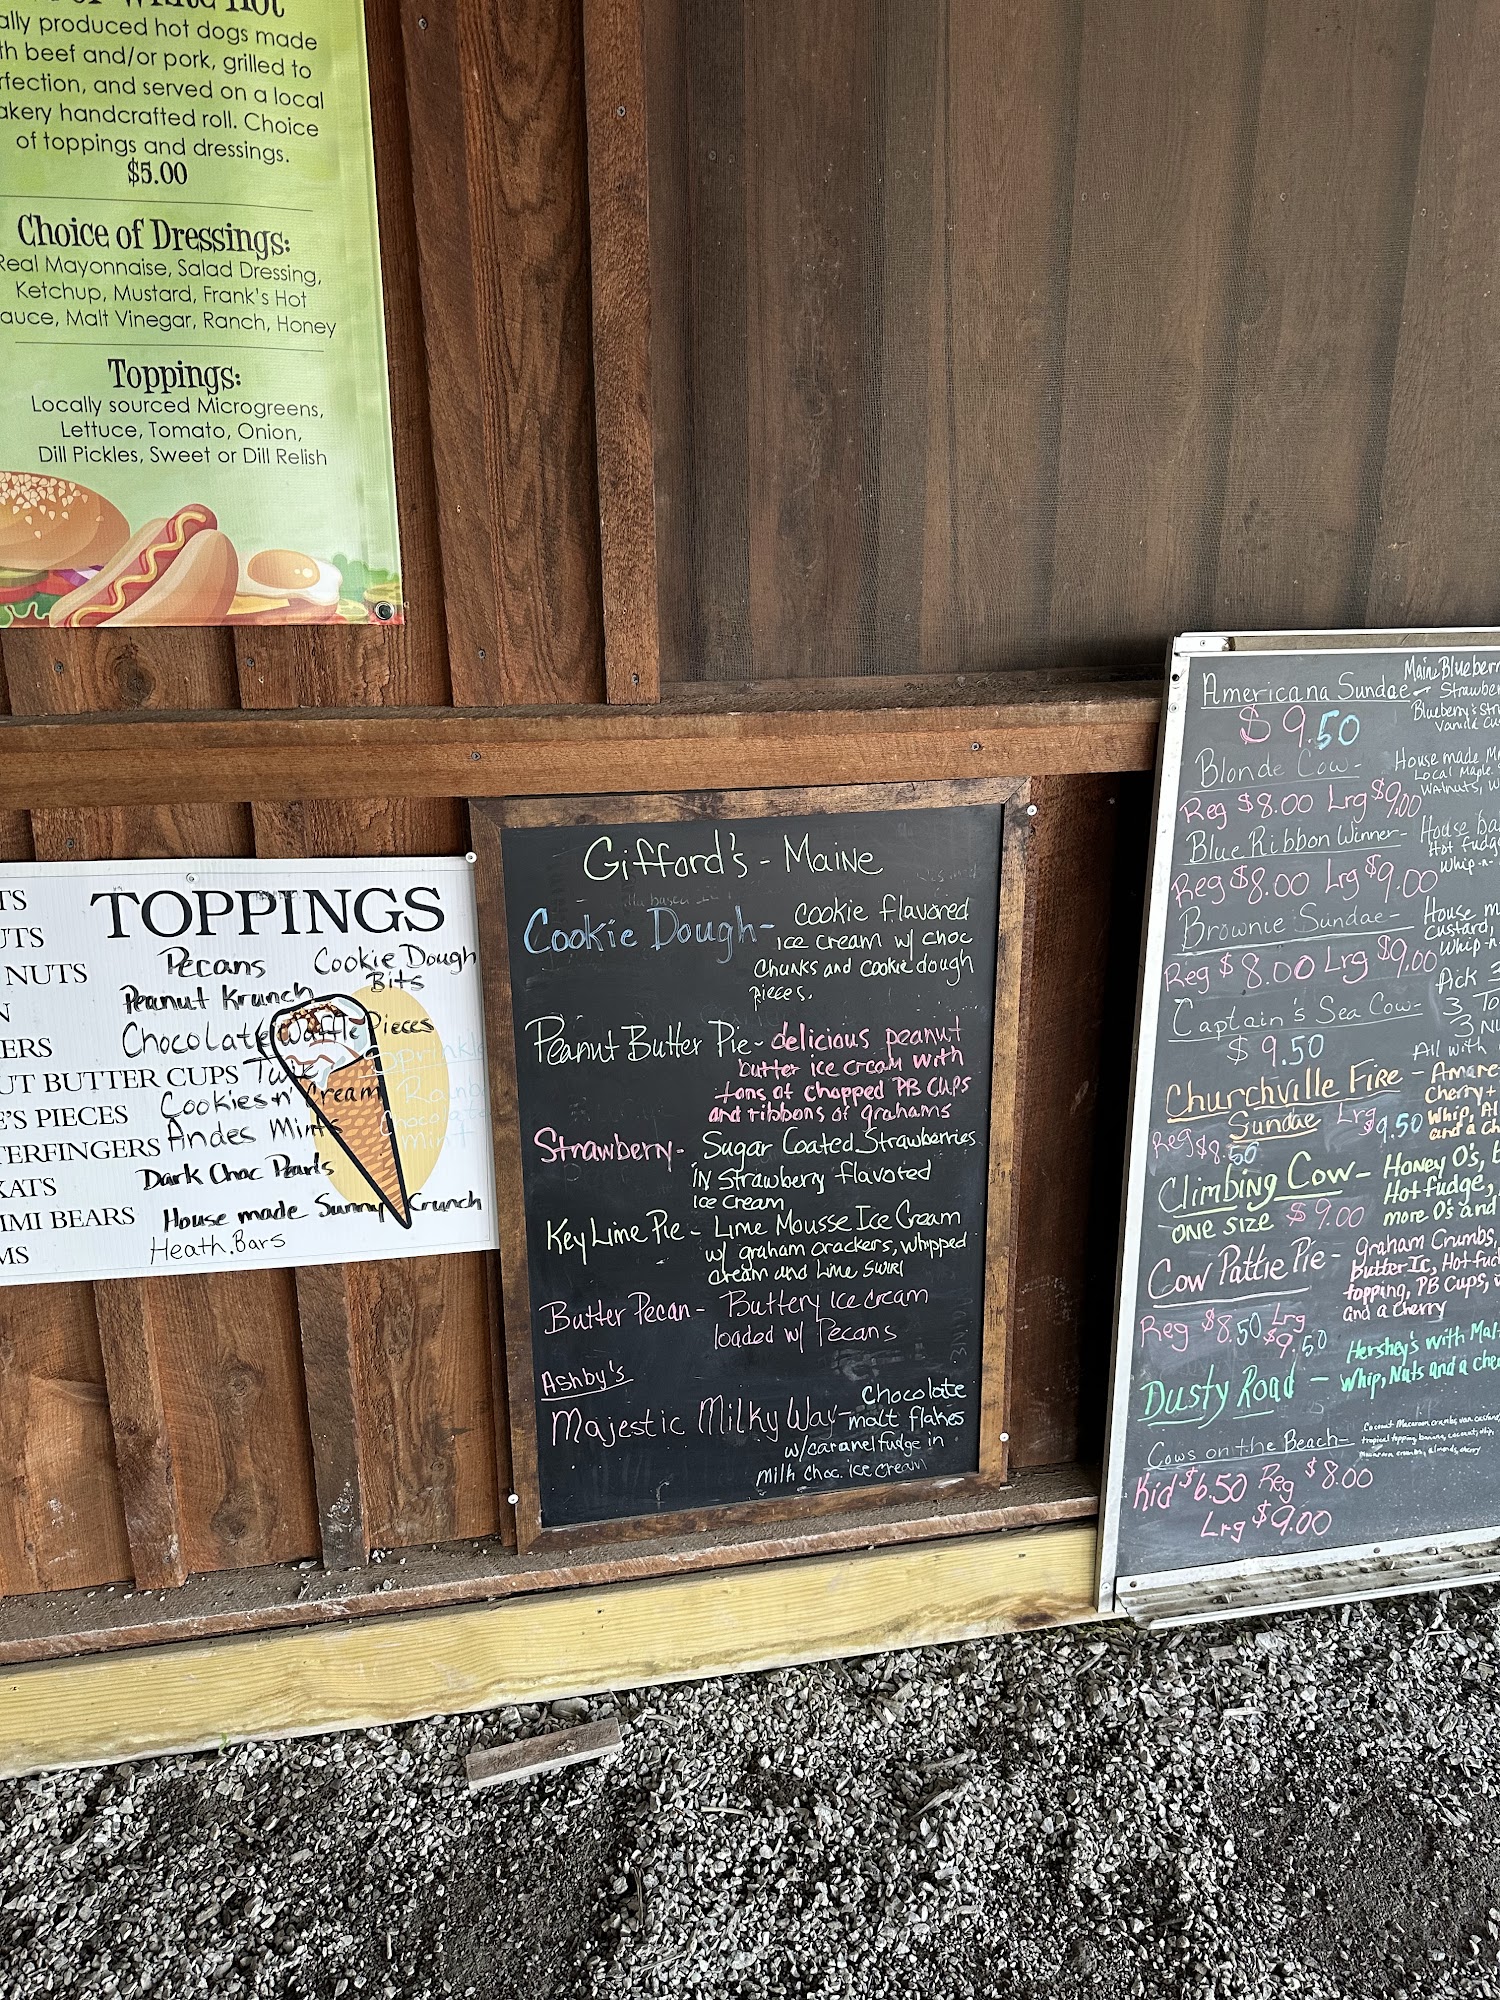 ally produced hot dogs made
th beef and/or pork, grilled to
rfection, and served on a local
akery handcrafted roll. Choice
of toppings and dressings.
$5.00
Choice of Dressings:
Real Mayonnaise, Salad Dressing,
Ketchup, Mustard, Frank's Hot
auce, Malt Vinegar, Ranch, Honey
Toppings:
Locally sourced Microgreens,
Lettuce, Tomato, Onion,
Dill Pickles, Sweet or Dill Relish
TOPPINGS
TS
UTS
NUTS
N
ERS
UT BUTTER CUPS
E'S PIECES
TERFINGERS
KATS
MMI BEARS
MS
Pecans
Cookie Dough
Bits
Peanut Krunch
Chocolate Waffle Pieces
Twix
Cookies n' Cream
Andes Mints
Dark Choc Pearls
House made Sunny Krunch
Heath Bars
Sprinkle
Chocolate
Mint
Gifford's - Maine
Cookie Dough - Cookie flavored
ice cream w/ choc
Chunks and cookie dough
pieces.
Peanut Butter Pie - delicious peanut
butter ice cream with
tons of chopped PB Cups
and ribbons of grahams
Strawberry - Sugar Coated Strawberries
in Strawberry flavored
ice cream
Key Lime Pie - Lime Mousse Ice Cream
w/ graham crackers, whipped
cream and lime swirl
Butter Pecan - Buttery Ice cream
loaded w/ Pecans
Ashby's
Majestic Milky Way - Chocolate
malt flakes
w/caramel fudge in
milk choc. ice cream
Americana Sundae - Maine Blueberr
Strawber
Blueberry's Str
Vanilla Cu
$9.50
Blonde Cow - House made M
Local Maple
Walnuts, W
Reg $8.00 Lrg $9.00
Blue Ribbon Winner - House
Hot fudge
Whip-n-
Reg $8.00 Lrg $9.00
Brownie Sundae - House m
Custard,
Whip-n
Reg $8.00 Lrg $9.00
Captain's Sea Cow - Pick 3
3 To
3 Nu
All with
$9.50
Churchville Fire Sundae - Amare
Cherry +
Whip, Al
and a ch
Reg $8.50 Lrg $9.50
Climbing Cow - Honey O's, B
Hot fudge,
more O's and
one size $9.00
Cow Pattie Pie - Graham Crumbs,
Butter Ic, Hot fud
topping, PB Cups,
and a cherry
Reg $8.50 Lrg $9.50
Dusty Road - Hershey's with Mal
Whip, Nuts and a che
Cows on the Beach - Coconut Macaroon crumbs, van custard
tropical topping, banana, coconut, whip,
macaroon crumbs, almonds, cherry
Kid $6.50 Reg $8.00
Lrg $9.00